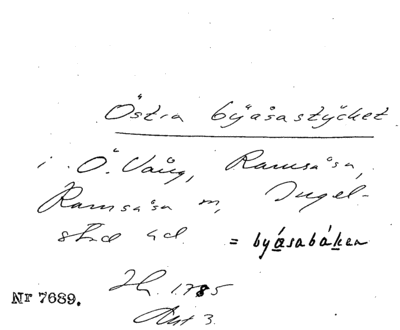 Östra byåsastycket
i Ö. Vång, Ramsåsa,
Ramsåsa sn, Ingel-
stad hd. = byåsabåken
1785
Akt 3.
Nr 7689.